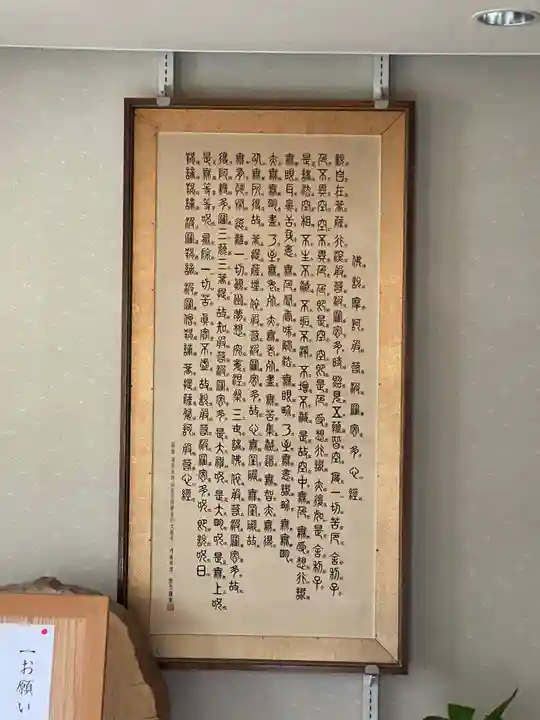 佛説摩訶般若波羅蜜多心經
觀自在菩薩行深般若波羅蜜多時照見五蘊皆空度一切苦厄舍利子
色不異空空不異色色即是空空即是色受想行識亦復如是舍利子
是諸法空相不生不滅不垢不淨不增不減是故空中無色無受想行識
無眼耳鼻舌身意無色聲香味觸法無眼界乃至無意識界無無明
亦無無明盡乃至無老死亦無老死盡無苦集滅道無智亦無得
以無所得故菩提薩埵依般若波羅蜜多故心無罣礙無罣礙故
無有恐怖遠離一切顛倒夢想究竟涅槃三世諸佛依般若波羅蜜多故
得阿耨多羅三藐三菩提故知般若波羅蜜多是大神呪是大明呪是無上呪
是無等等呪能除一切苦真實不虛故説般若波羅蜜多呪即説呪曰
羯諦羯諦波羅羯諦波羅僧羯諦菩提薩婆訶般若心經
一お願い